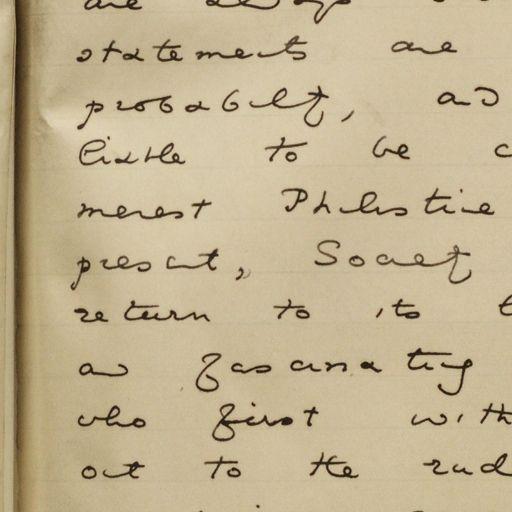 are always
statements are
probability, and
liable to be
merest Philistine
present, Society
return to its
and fascinating
who first with
out to the rud